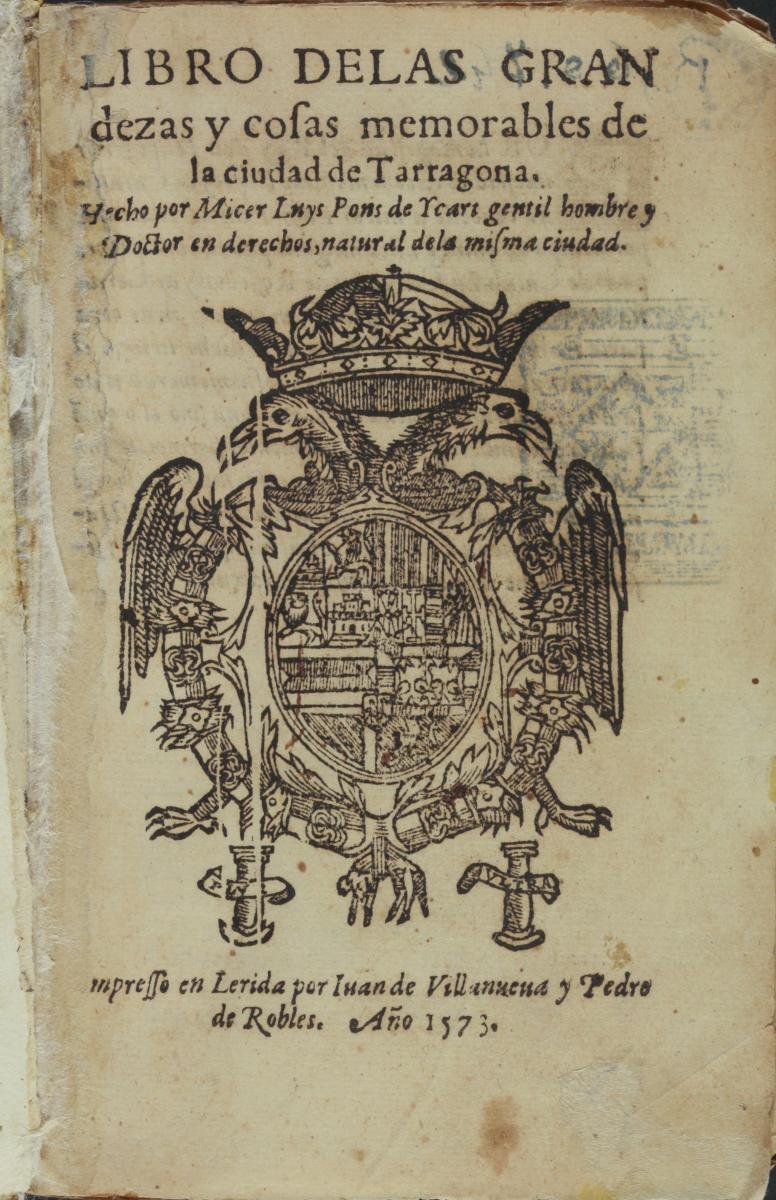 LIBRO DELAS GRAN
dezas y coſas memorables de
la ciudad de Tarragona.
Hecho por Micer Luys Pons de Ycart gentil hombre y
Doctor en derechos, natural dela miſma ciudad.
mpreſſo en Lerida por Iuan de Villanueua y Pedro
de Robles. Año 1573.